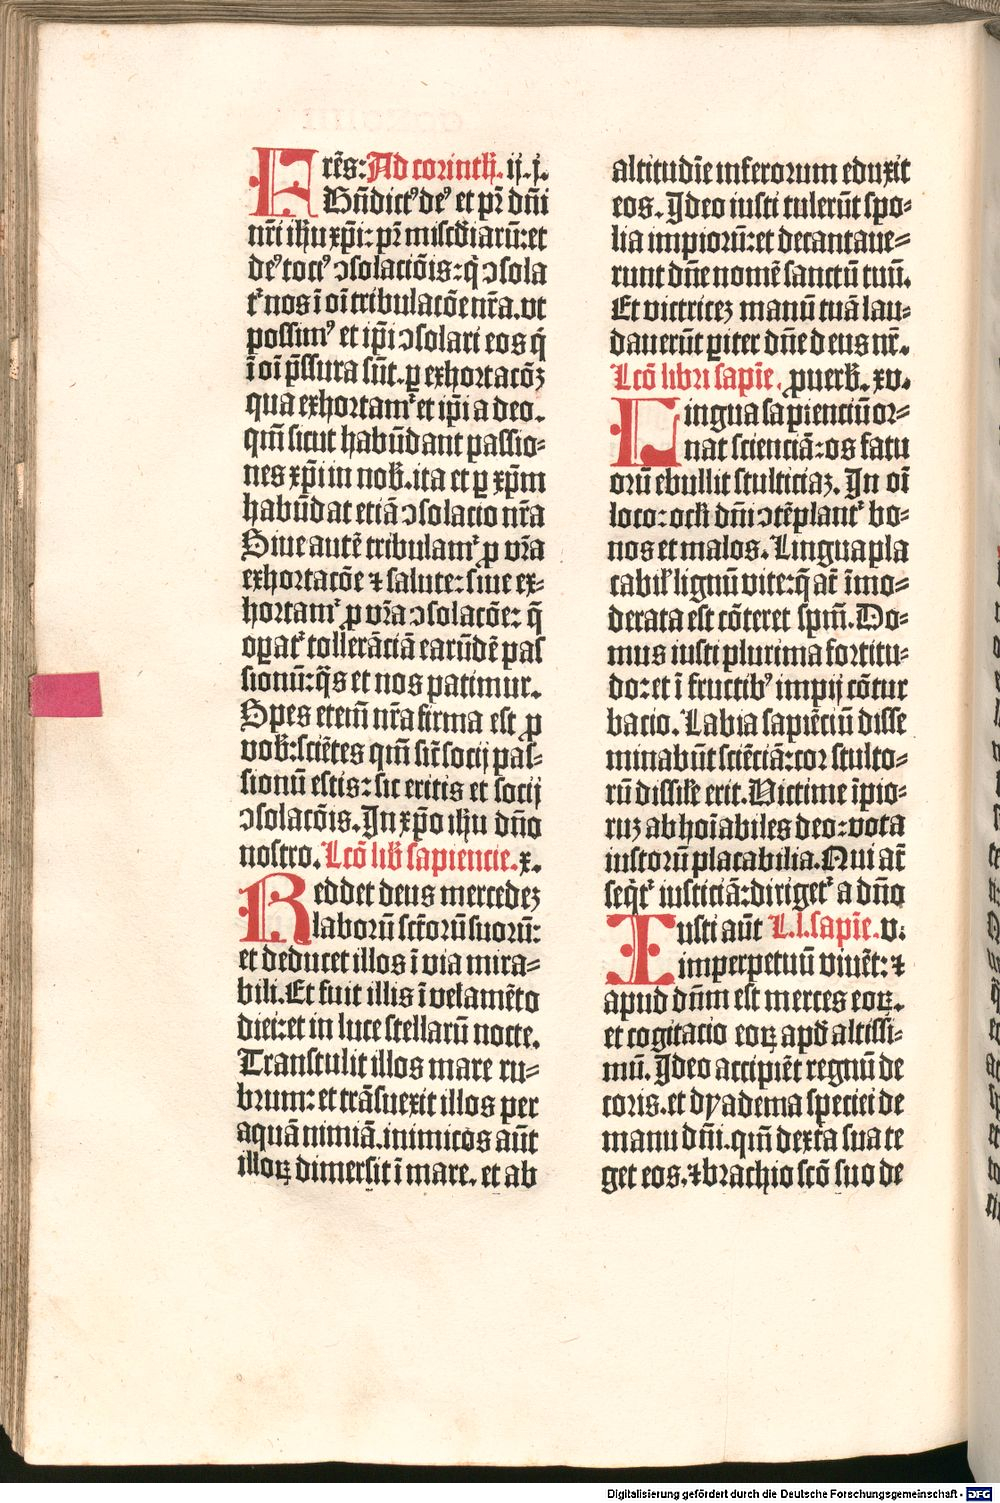 Frēs: Ad corinth̄. ij. j.
Bn̄dictꝰ deꝰ et pr̄ dn̄i
nr̄i ih̄u xp̄i: pr̄ miscd̄iarū: et
deꝰ tociꝰ ↄsolaciōis: q̇ ↄsola
t᷑ nos ī oī tribulacōe nr̄a. vt
possimꝰ et ip̄i ↄsolari eos q̇
ī oī p̄ssura sūt. ꝑ exhortacōꝫ
qua exhortam᷑ et ip̄i a deo.
qm̄ sicut habūdant passio⸗
nes xp̄i in nob̄. ita et ꝑ xp̄m
habūdat etiā ↄsolacio nr̄a
Siue autē tribulam᷑ ꝓ vr̄a
exhortacōe ⁊ salute: siue ex⸗
hortam᷑ ꝓ vr̄a ↄsolacōe: q̄
oꝑat᷑ tollerāciā earūdē pas
sionū: q̄s et nos patimur.
Spes etem̄ nr̄a firma est ꝓ
vob̄: sciētes qm̄ sic̄ socij pas⸗
sionū estis: sic eritis et socij
ↄsolacōis. In xp̄o ih̄u dn̄o
nostro. Lcō lib̄ sapiencie. x.
Reddet deus mercedeꝫ
laborū sctōrū suorū:
et deducet illos ī via mira⸗
bili. Et fuit illis ī velamēto
diei: et in luce stellarū nocte.
Transtulit illos mare ru⸗
brum: et trāsuexit illos per
aquā nimiā. inimicos aūt
illoꝝ dimersit ī mare. et ab
altitudīe inferorum eduxit
eos. Ideo iusti tulerūt spo⸗
lia impiorū: et decantaue⸗
runt dn̄e nomē sanctū tuū.
Et victriceꝫ manū tuā lau⸗
dauerūt ꝑiter dn̄e deus nr̄.
Lcō libri sapīe. ꝓuerb̄. xv.
Lingua sapienciū or⸗
nat scienciā: os fatu
orū ebullit stulticiaꝫ. In oī
loco: ocl̄i dn̄i ↄtēplant᷑ bo⸗
nos et malos. Lingua pla
cabil̄ lignū vite: q̄ at̄ īmo⸗
derata est cōteret spm̄. Do⸗
mus iusti plurima fortitu⸗
do: et ī fructibꝰ impij cōtur
bacio. Labia sapiēciū disse
minabūt sciēciā: cor stulto⸗
rū dissil̄e erit. Victime īpio⸗
ruꝫ abhoīabiles deo: vota
iustorū placabilia. Qui at̄
seqt᷑ iusticiā: diriget᷑ a dn̄o
Iusti aūt L. l. sapīe. v.
imperpetuū viuēt: ⁊
apud dn̄m est merces eoꝝ.
et cogitacio eoꝝ apd̄ altissi⸗
mū. Ideo accipiēt regnū de
coris. et dyadema speciei de
manu dn̄i. qm̄ dexťa sua te
get eos. ⁊ brachio scō suo de
Digitalisierung gefördert durch die Deutsche Forschungsgemeinschaft - DFG